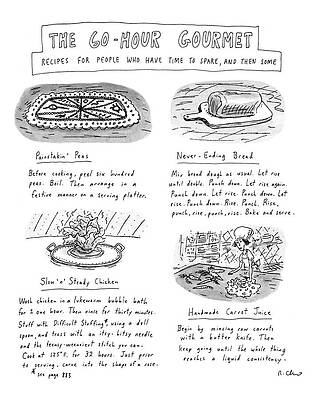 THE 60-HOUR GOURMET
RECIPES FOR PEOPLE WHO HAVE TIME TO SPARE, AND THEN SOME
Painstakin' Peas
Before cooking, peel six hundred
peas. Boil. Then arrange in a
festive manner on a serving platter.
Never-Ending Bread
Mix bread dough as usual. Let rise
until double. Punch down. Let rise again.
Punch down. Let rise. Punch down. Let
rise. Punch down. Rise. Punch. Rise,
punch, rise, punch, rise. Bake and serve.
Slow 'n' Steady Chicken
Wash chicken in a lukewarm bubble bath
for one hour. Then rinse for thirty minutes.
Stuff with Difficult Stuffing*, using a doll
spoon, and truss with an itsy-bitsy needle
and the teensy-weensiest stitch you can.
Cook at 125°F. for 32 hours. Just prior
to serving, carve into the shape of a rose.
* see page 883
Handmade Carrot Juice
Begin by mincing raw carrots
with a butter knife. Then
keep going until the whole thing
reaches a liquid consistency.
R. Chast